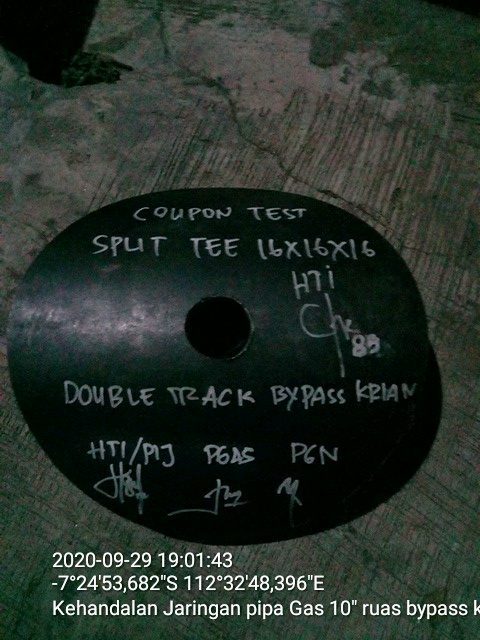 COUPON TEST
SPLIT TEE 16X16X16
HTI
89
DOUBLE TRACK BYPASS KRIAN
HTI/PIJ PGAS PGN
2020-09-29 19:01:43
-7°24'53,682"S 112°32'48,396"E
Kehandalan Jaringan pipa Gas 10" ruas bypass k